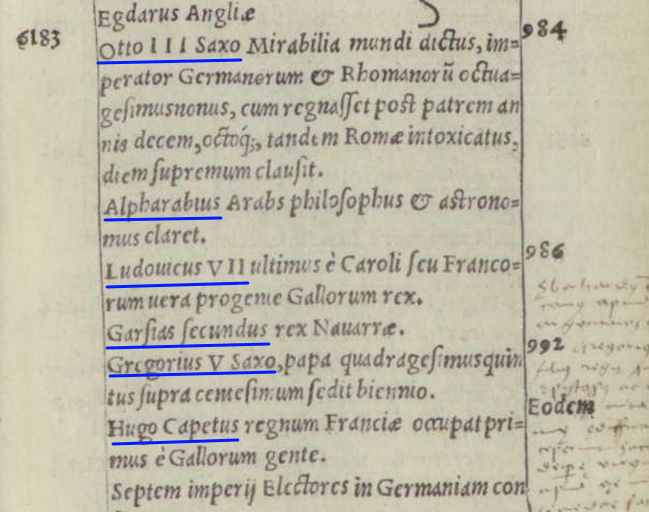 Egdarus Angliæ
6183 Otto III Saxo Mirabilia mundi dictus, im= 984
perator Germanorum & Rhomanorū octua=
gesimusnonus, cum regnasset post patrem an
nis decem, octoq;, tandem Romæ intoxicatus,
diem supremum clausit.
Alpharabius Arabs philosophus & astrono=
mus claret.
Ludouicus VII ultimus è Caroli seu Franco= 986
rum uera progenie Gallorum rex.
Garsias secundus rex Nauarræ.
Gregorius V Saxo, papa quadragesimusquin 992
tus supra centesimum sedit biennio.
Hugo Capetus regnum Franciæ occupat pri= Eodem
mus è Gallorum gente.
Septem imperij Electores in Germaniam con